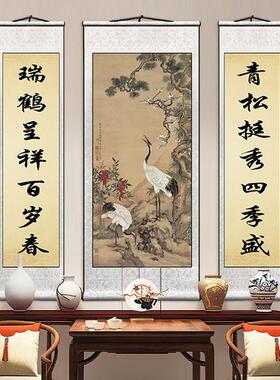 青松挺秀四季盛
瑞鹤呈祥百岁春